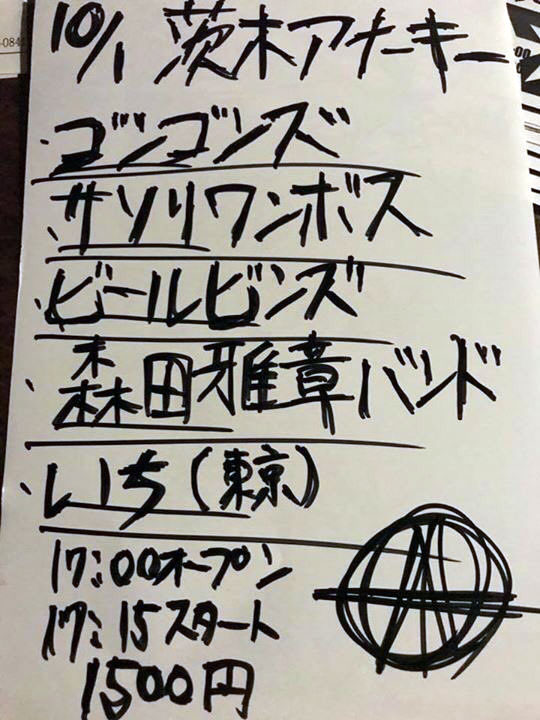 10/1 茨木アナーキー
・ゴンゴンズ
・サソリワンボス
・ビールビンズ
・森田雅章バンド
・いち(東京)
17:00オープン
17:15スタート
1500円